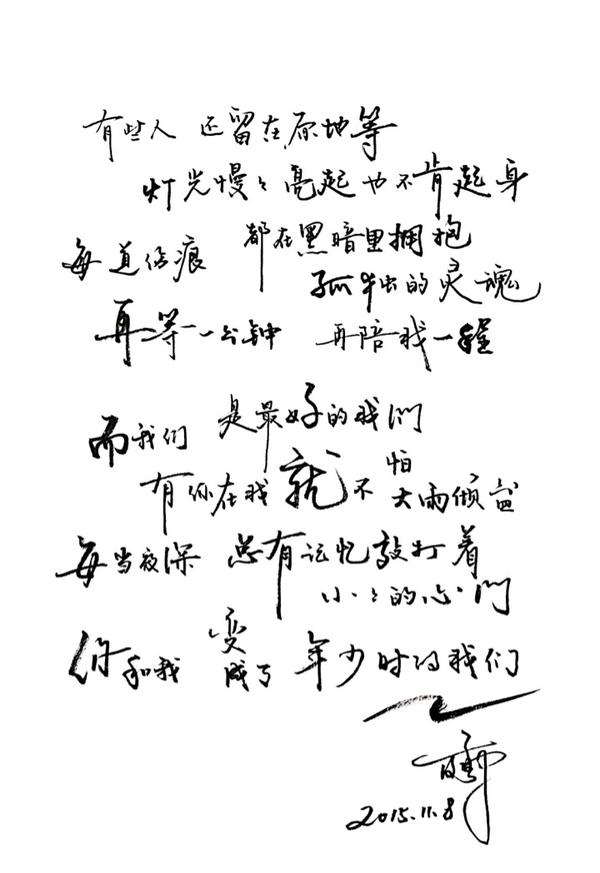 有些人 还留在原地等
灯光慢慢亮起也不肯起身
每道伤痕 都在黑暗里拥抱
孤独的灵魂
再等一分钟 再陪我一程
而我们 是最好的我们
有你在我就不怕大雨倾盆
每当夜深 总有记忆敲打着
小小的心门
你和我 变成了 年少时的我们
2015.11.8